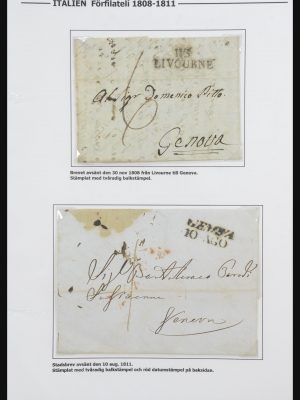 ITALIEN Förfilateli 1808-1811
113
LIVOURNE
Al Sigr Domenico
Genova
Brevet avsänt den 30 nov 1808 från Livourne till Genova.
Stämplat med tvåradig balkstämpel.
GENOVA
10 AGO
Genova
Stadsbrev avsänt den 10 aug. 1811.
Stämplat med tvåradig balkstämpel och röd datumstämpel på baksidan.